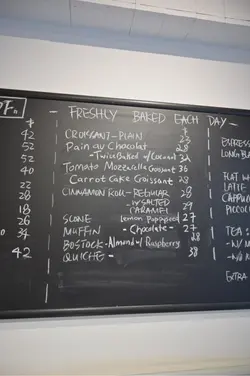 - FRESHLY BAKED EACH DAY -
$
42
52
52
40
22
28
18
26
34
42
$
CROISSANT - PLAIN 23
Pain au Chocolat 28
- Twice Baked w/ Coconut 32
Tomato Mozzarella Croissant 36
Carrot Cake Croissant 28
CINNAMON ROLL - REGULAR 28
- w/ SALTED CARAMEL 29
SCONE Lemon Poppyseed 27
MUFFIN - Chocolate - 27
BOSTOCK - Almond w/ Raspberry 28
QUICHE - 38
ESPRESS
LONG BLA
FLAT W
LATTE
CAPPUC
PICCOL
TEA :
EXTRA